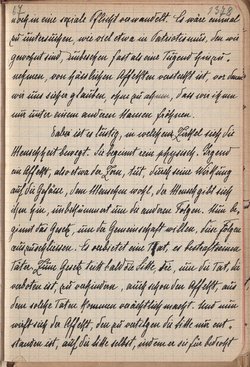 17 1378
noch in eine soziale Pflicht verwandelt. Es wäre einmal
zu untersuchen, wie viel etwa im Patriotismus, den wir
gewohnt sind, inzwischen fast als eine Tugend hinzu-
nehmen, von hässlichen Affekten versteckt ist, vor denen
wir uns sicher glauben, ohne zu ahnen, dass wir ihnen
nur unter einem anderen Namen fröhnen.
Dabei ist es lustig, in welchem Zirkel sich die
Menschheit bewegt. Sie beginnt rein physisch. Irgend
ein Affekt, also etwa der Zorn, tut, durch seine Wirkung
auf die Gefässe, dem Menschen wohl, der Mensch gibt sich
ihm hin, unbekümmert um die anderen Folgen. Nun be-
ginnt das Gesetz, um der Gemeinschaft willen, diese Folgen
auszuschliessen. Es verbietet eine Tat, es bestraft einen
Täter. Zum Gesetz tritt bald die Sitte, die, um die Tat, die
verboten ist, zu verhindern, auch schon den Affekt, aus
dem solche Taten kommen, verächtlich macht. Und nun
wirft sich der Affekt, den zu vertilgen die Sitte nur ent-
standen ist, auf die Sitte selbst, indem er sie für bedroht